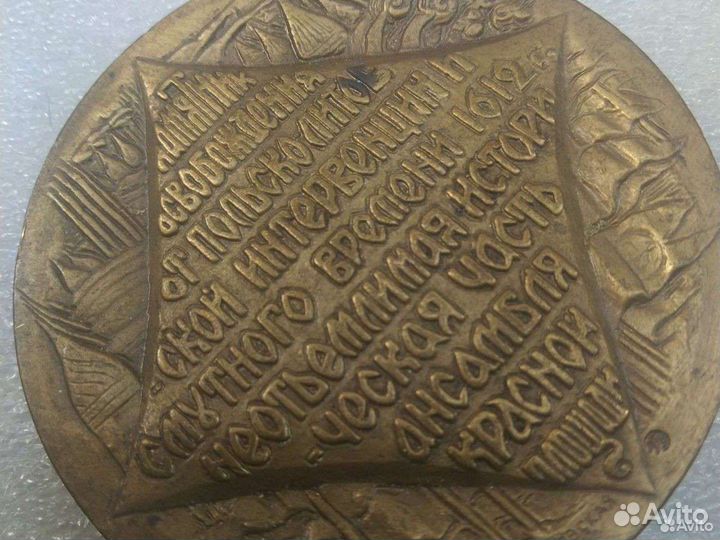 памятник
освобождения
от польско-литов
-ской интервенции и
смутного времени 1612 г.
неотъемлимая истори
-ческая часть
ансамбля
красной
площади
Avito
Avito